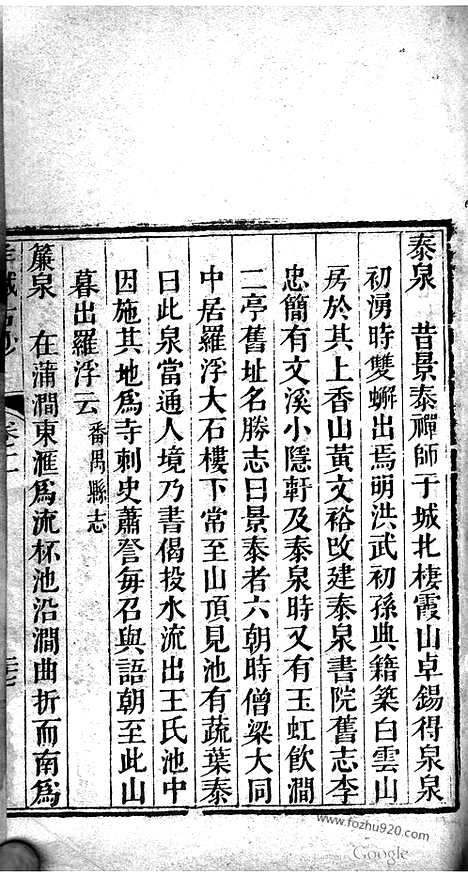 泰泉　昔景泰禪師于城北棲霞山卓錫得泉泉
初湧時雙蠏出焉明洪武初孫典籍築白雲山
房於其上香山黃文裕改建泰泉書院舊志李
忠簡有文溪小隱軒及泰泉時又有玉虹飲澗
二亭舊址名勝志曰景泰者六朝時僧梁大同
中居羅浮大石樓下常至山頂見池有蔬葉泰
曰此泉當通人境乃書偈投水流出王氏池中
因施其地爲寺刺史蕭誉每召與語朝至此山
暮出羅浮云番禺縣志
簾泉　在蒲澗東滙爲流杯池沿澗曲折而南爲
羊城古鈔
卷二
www.fozhu920.com
Google